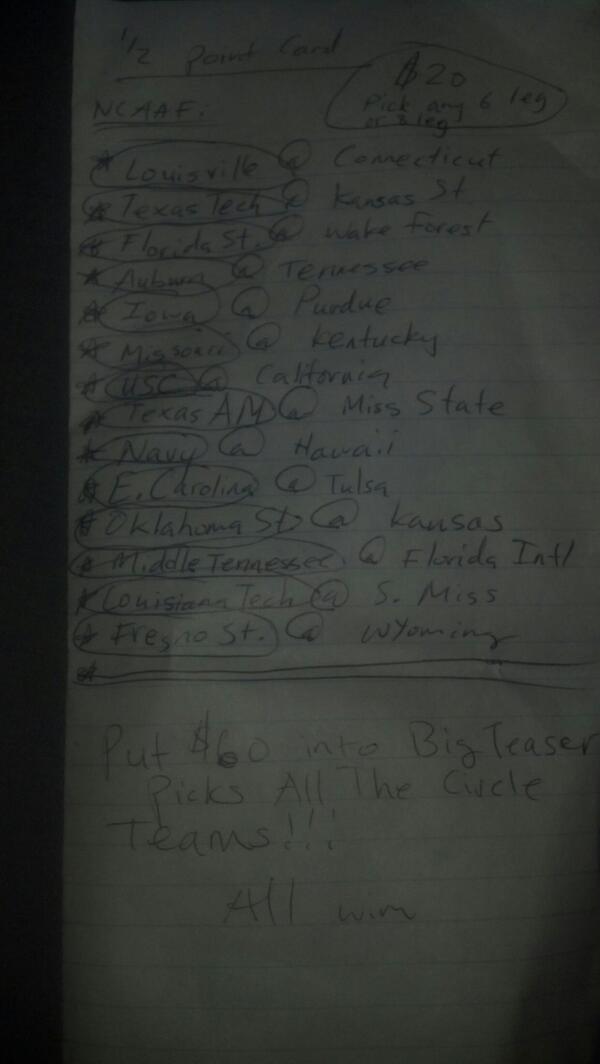 1/2 Point Card
$20
Pick any 6 leg
or 8 leg
NCAAF:
* Louisville @ Connecticut
* Texas Tech @ Kansas St
* Florida St. @ Wake Forest
* Auburn @ Tennessee
* Iowa @ Purdue
* Missouri @ Kentucky
* USC @ California
* Texas AM @ Miss State
* Navy @ Hawaii
* E. Carolina @ Tulsa
* Oklahoma St @ Kansas
* Middle Tennessee @ Florida Intl
* Louisiana Tech @ S. Miss
* Fresno St. @ Wyoming
*
Put $60 into Big Teaser
Picks All The Circle
Teams!!!
All win